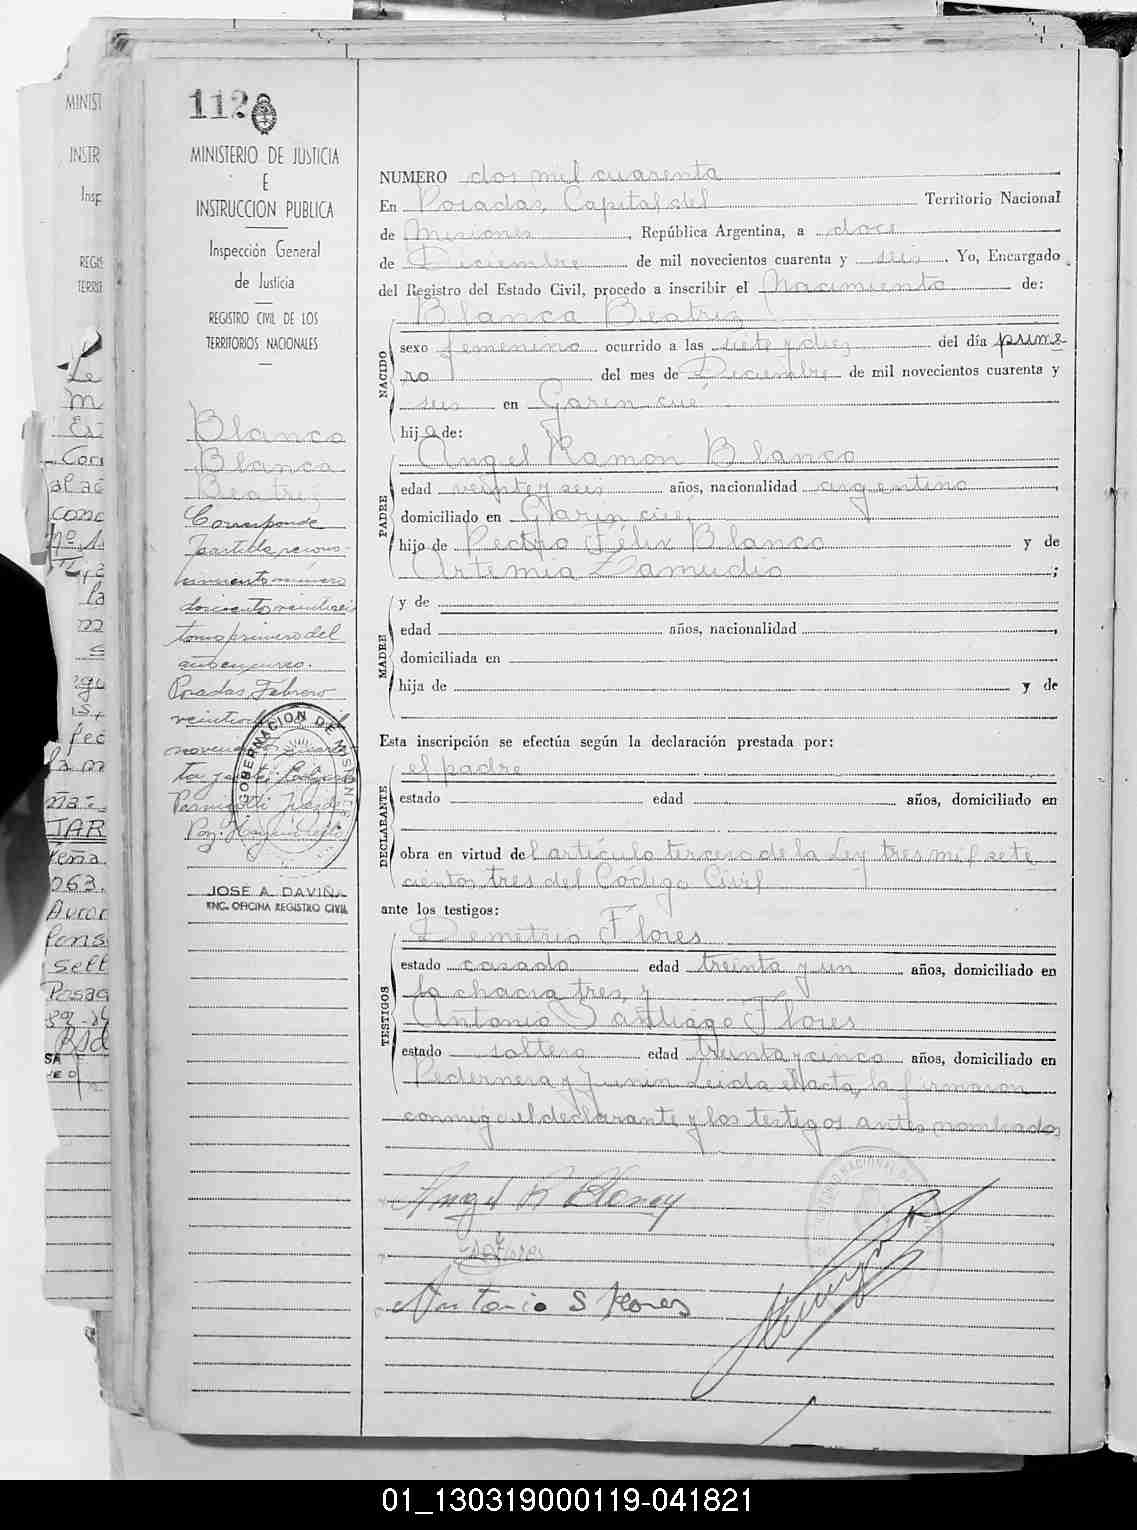 112
MINISTERIO DE JUSTICIA
E
INSTRUCCION PUBLICA
Inspección General
de Justicia
REGISTRO CIVIL DE LOS
TERRITORIOS NACIONALES
Blanco
Blanca
Beatriz
Corresponde
partida recono-
cimiento número
doscientos veintiseis
tomo primero del
año en curso.
Posadas, Febrero
GOBERNACION DE MISIONES
JOSE A. DAVIÑA
ENC. OFICINA REGISTRO CIVIL
NUMERO dos mil cuarenta
En Posadas, Capital del Territorio Nacional
de Misiones, República Argentina, a doce
de Diciembre de mil novecientos cuarenta y seis. Yo, Encargado
del Registro del Estado Civil, procedo a inscribir el Nacimiento de:
Blanca Beatriz
NACIDO
sexo femenino ocurrido a las siete y diez del día prime-
ro del mes de Diciembre de mil novecientos cuarenta y
seis en Garin cué
hija de:
Angel Ramón Blanco
PADRE
edad veinte y seis años, nacionalidad argentino,
domiciliado en Garin cué,
hijo de Pedro Félix Blanco y de
Artemia Zamudio;
MADRE
y de
edad años, nacionalidad
domiciliada en
hija de y de
Esta inscripción se efectúa según la declaración prestada por:
el padre
DECLARANTE
estado edad años, domiciliado en
obra en virtud del artículo tercero de la Ley tres mil sete
cientos tres del Código Civil
ante los testigos:
Demetrio Flores
TESTIGOS
estado casado edad treinta y un años, domiciliado en
la chacra tres, y
Antonio Santiago Flores
estado soltero edad treinta y cinco años, domiciliado en
Pedernera y Junin Leida el acta, la firmaron
conmigo el declarante y los testigos antes nombrados
Angel R Blanco
Antonio S Flores
01_130319000119-041821